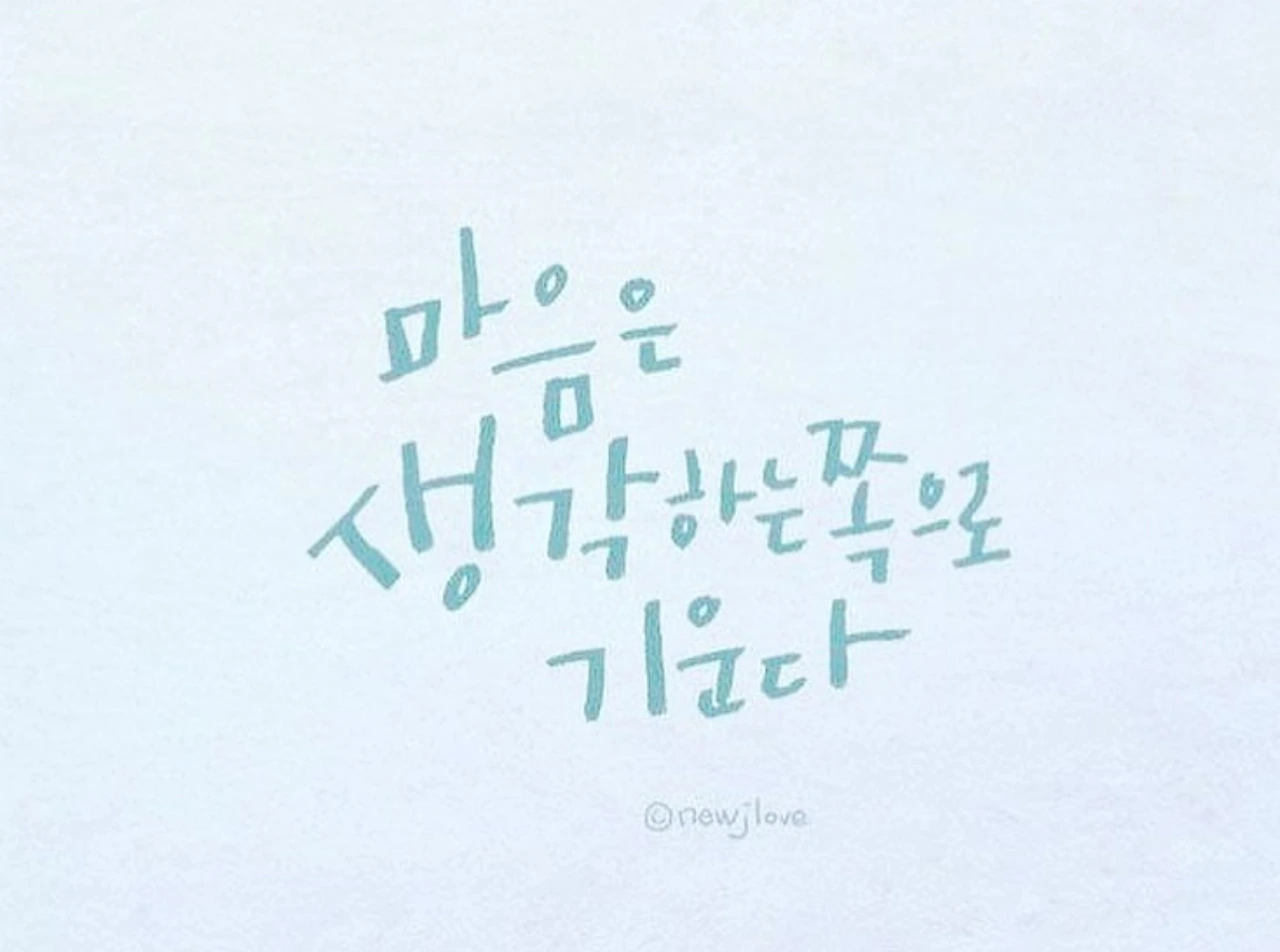 마음은
생각하는쪽으로
기운다
©newjlove